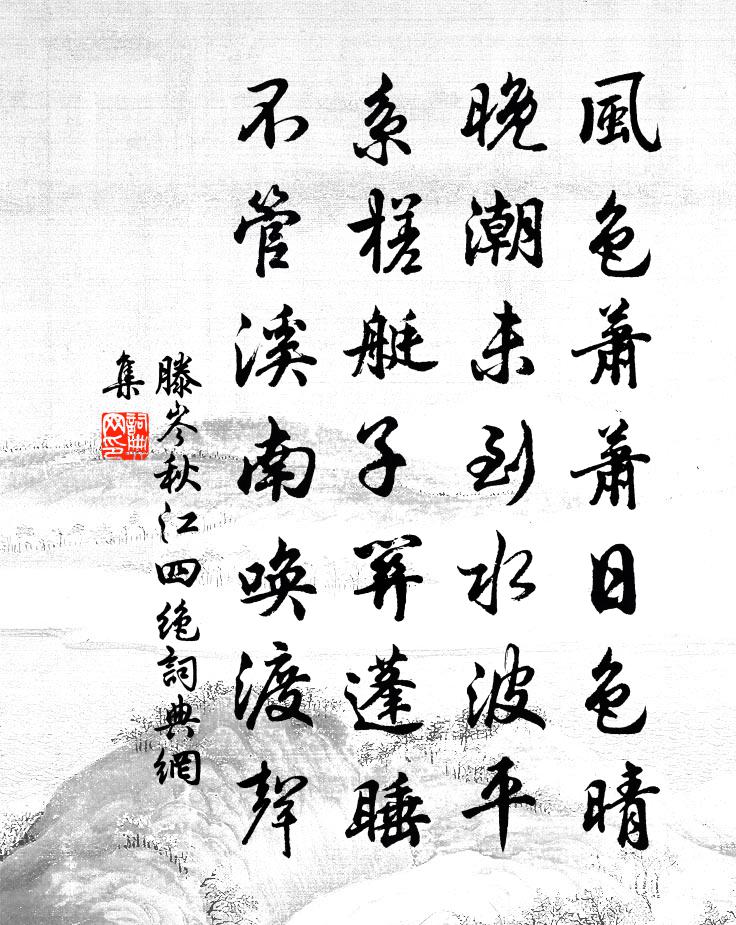 風色蕭蕭日色晴
晚潮未到水波平
系槎艇子開蓬睡
不管溪南喚渡聲
滕岑秋江四絶詞典網
集
詞典
网印